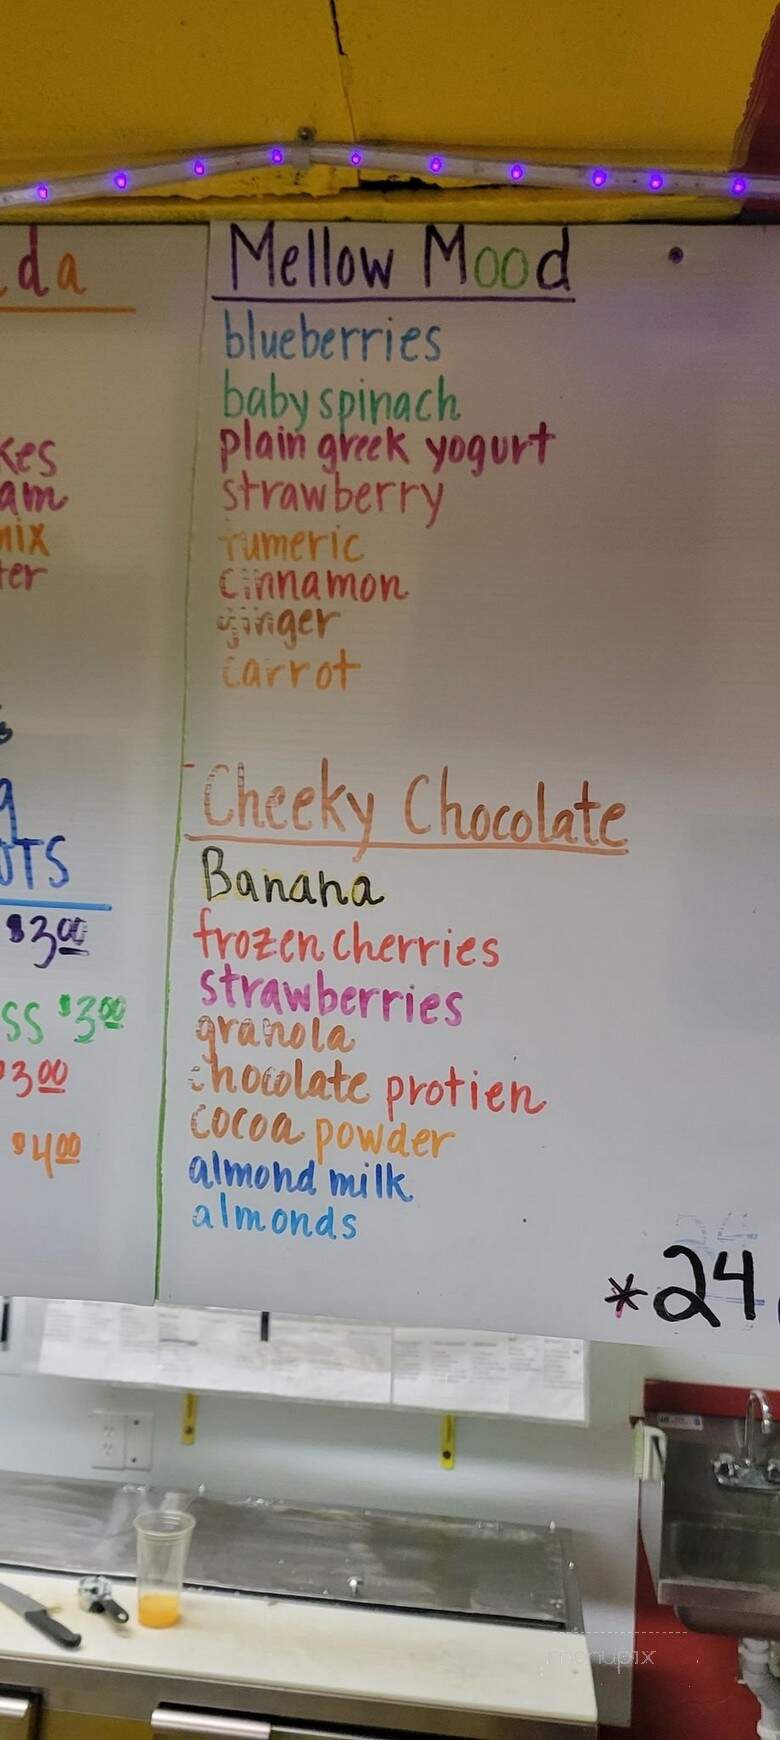 da
kes
am
mix
ter
g
OTS
$3.00
SS $3.00
$3.00
$4.00
Mellow Mood
blueberries
baby spinach
plain greek yogurt
strawberry
tumeric
cinnamon
ginger
carrot
Cheeky Chocolate
Banana
frozen cherries
strawberries
granola
chocolate protien
cocoa powder
almond milk
almonds
*24
menupix